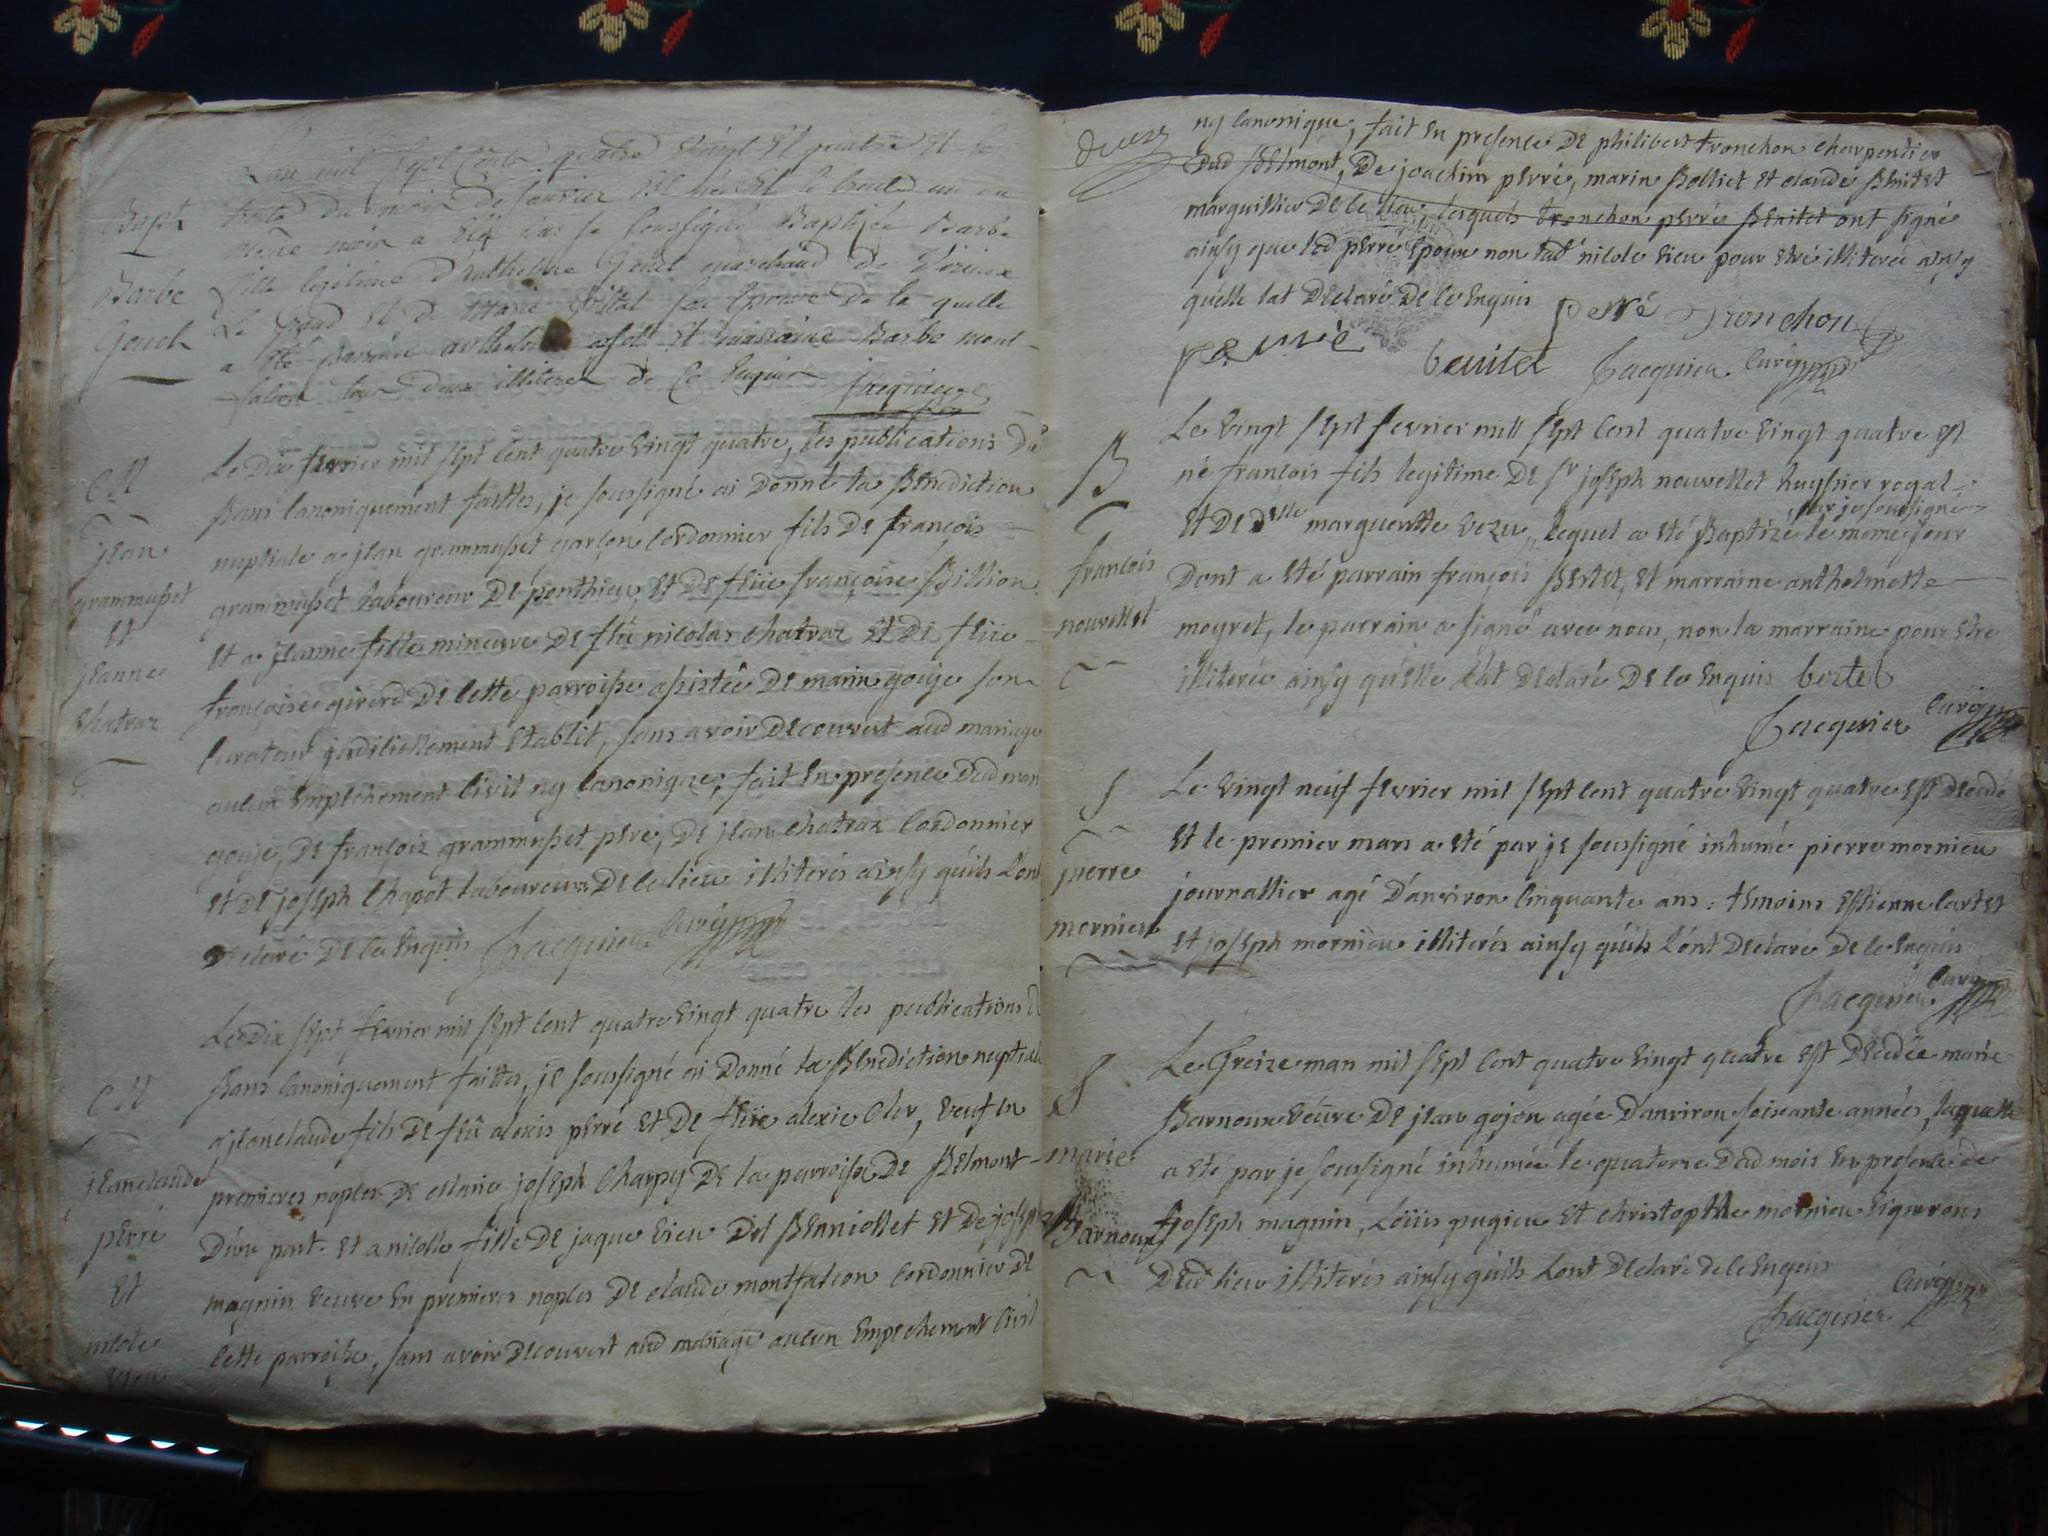 L'an mil sept cents quatre vingt et quatre et le
trente du mois de janvier est née et le trente un du
même mois a été par je soussigné Baptisée Barbe
fille legitime d'anthelme Gouch marchand de Virieux
Le grand et de Marie Vittal son Epouse de la quelle
a été parrain et marraine Barbe mont-
falcon tous deux illiteres de ce Enquis Jacquier
Bapt
Barbe
Gouch
Le Dix fevrier mil sept cent quatre vingt quatre, les publications de
Bans canoniquement faittes, je soussigné ai Donné la Benediction
nuptiale a jean grammusset garçon cordonnier fils De françois
grammusset laboureur De ponthieu, et De füe françoise Billion
et a jeanne fille mineure De fû nicolas chatraz et De füe
françoise girerd De cette parroisse assistée De marin gouje son
curateur judiciellement etablit, sans avoir Decouvert aud mariage
aucun empechement civil ny canonique; fait en presence dud marin
gouje, De françois grammusset pere, De jean chatraz cordonnier
et De joseph chapot laboureurs De ce lieu illiterés ainsy qu'ils l'ont
Declaré De ce enquis Jacquier Curé
M
jean
grammusset
et
jeanne
chatraz
Le dix sept fevrier mil sept cent quatre vingt quatre les publications de
Bans canoniquement faittes, je soussigné ai Donné la Benediction nuptiale
a jeanclaude fils De feû alexis perré et De füe alexie Cler, veuf en
premieres noples De Marie joseph Charpy De la parroisse De Belmont
D'une part. et a nicolle fille De jaque vieu Dit Benniollet et De joseph
magnin veuve en premieres noples De claude montfalcon cordonnier De
cette parroisse, sans avoir Decouvert aud mariage aucun empechement civil
M
jeanclaude
perré
et
nicole
vieu
deux
ny canonique, fait en presence De philibert tronchon charpentier
Dud Belmont, De joachim perré, marin Bolliet et claude Benitet
marguillier De ce lieu, lesquels tronchon perré Benitet ont signé
ainsy que led perré epoux non lad nicole vieu pour etre illiterée ainsy
qu'elle l'at Declaré De ce enquis perré Tronchon
perré benitet Jacquier Curé
Le vingt sept fevrier mil sept cent quatre vingt quatre est
né françois fils legitime De Sr joseph nouvellet huyssier royal
par je soussigné
et De Delle marguerite vezu, lequel a eté Baptizé le meme jour
Dont a eté parrain françois Bertet, et marraine anthelmette
moyret, le parrain a signé avec nous, non la marraine pour etre
illiterée ainsy qu'elle l'at Declaré De ce enquis bertet
Jacquier Curé
B
françois
nouvellet
Le vingt neuf fevrier mil sept cent quatre vingt quatre est Decedé
et le premier mars a eté par je soussigné inhumé pierre mornieu
journallier agé D'anviron cinquante ans: temoins estienne cartet
et joseph mornieu illiterés ainsy qu'ils l'ont Declaré De ce enquis
Jacquier Curé
S
pierre
mornieu
Le Treize mars mil sept cent quatre vingt quatre est Decedée marie
Barnoux veuve De jean gojon agée D'anviron soisante années, laquelle
a eté par je soussigné inhumée le quatorze Dud mois en presence de
joseph magnin, Loüis pugieu et christophle mornieu vignerons
Dud lieu illiterés ainsy qu'ils l'ont Declaré de ce enquis
Jacquier Curé
S
marie
Barnoux